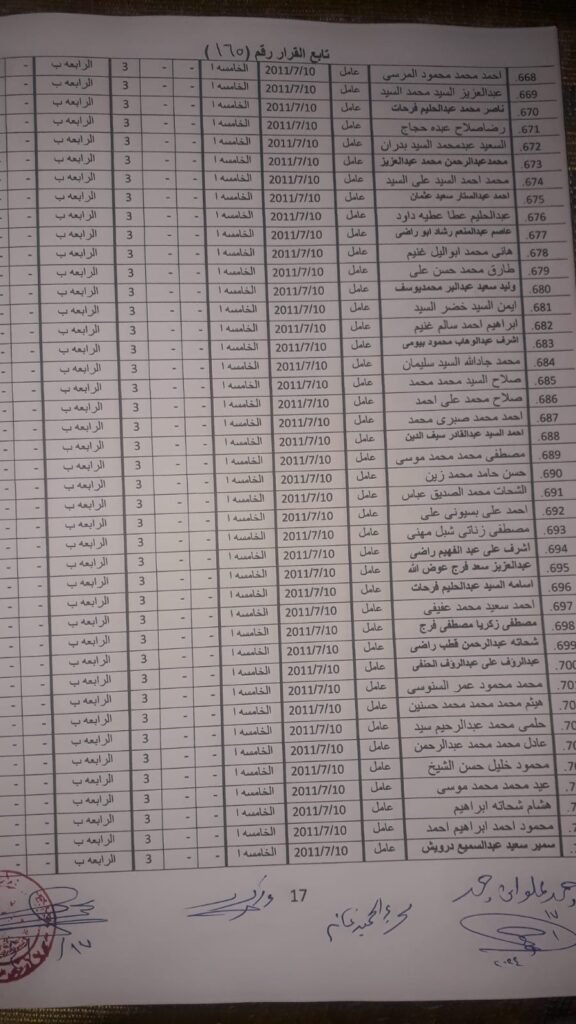 تابع القرار رقم (١٦٥)
668. احمد محمد محمود المرسى عامل 2011/7/10 الخامسه ا - - 3 الرابعه ب -
669. عبدالعزيز السيد محمد السيد عامل 2011/7/10 الخامسه ا - - 3 الرابعه ب -
670. ناصر محمد عبدالحليم فرحات عامل 2011/7/10 الخامسه ا - - 3 الرابعه ب -
671. رضاصلاح عبده حجاج عامل 2011/7/10 الخامسه ا - - 3 الرابعه ب -
672. السعيد عبدمحمد السيد بدران عامل 2011/7/10 الخامسه ا - - 3 الرابعه ب -
673. محمدعبدالرحمن محمد عبدالعزيز عامل 2011/7/10 الخامسه ا - - 3 الرابعه ب -
674. محمد احمد السيد على السيد عامل 2011/7/10 الخامسه ا - - 3 الرابعه ب -
675. احمد عبدالستار سعيد عثمان عامل 2011/7/10 الخامسه ا - - 3 الرابعه ب -
676. عبدالحليم عطا عطيه داود عامل 2011/7/10 الخامسه ا - - 3 الرابعه ب -
677. عاصم عبدالمنعم رشاد ابو راضى عامل 2011/7/10 الخامسه ا - - 3 الرابعه ب -
678. هانى محمد ابواليل غنيم عامل 2011/7/10 الخامسه ا - - 3 الرابعه ب -
679. طارق محمد حسن على عامل 2011/7/10 الخامسه ا - - 3 الرابعه ب -
680. وليد سعيد عبدالبر محمديوسف عامل 2011/7/10 الخامسه ا - - 3 الرابعه ب -
681. ايمن السيد خضر السيد عامل 2011/7/10 الخامسه ا - - 3 الرابعه ب -
682. ابراهيم احمد سالم غنيم عامل 2011/7/10 الخامسه ا - - 3 الرابعه ب -
683. اشرف عبدالوهاب محمود بيومى عامل 2011/7/10 الخامسه ا - - 3 الرابعه ب -
684. محمد جادالله السيد سليمان عامل 2011/7/10 الخامسه ا - - 3 الرابعه ب -
685. صلاح السيد محمد محمد عامل 2011/7/10 الخامسه ا - - 3 الرابعه ب -
686. صلاح محمد على احمد عامل 2011/7/10 الخامسه ا - - 3 الرابعه ب -
687. احمد محمد صبرى محمد عامل 2011/7/10 الخامسه ا - - 3 الرابعه ب -
688. احمد السيد عبدالقادر سيف الدين عامل 2011/7/10 الخامسه ا - - 3 الرابعه ب -
689. مصطفى محمد محمد موسى عامل 2011/7/10 الخامسه ا - - 3 الرابعه ب -
690. حسن حامد محمد زين عامل 2011/7/10 الخامسه ا - - 3 الرابعه ب -
691. الشحات محمد الصديق عباس عامل 2011/7/10 الخامسه ا - - 3 الرابعه ب -
692. احمد على بسيونى على عامل 2011/7/10 الخامسه ا - - 3 الرابعه ب -
693. مصطفى زناتى شبل مهنى عامل 2011/7/10 الخامسه ا - - 3 الرابعه ب -
694. اشرف على عبد الفهيم راضى عامل 2011/7/10 الخامسه ا - - 3 الرابعه ب -
695. عبدالعزيز سعد فرج عوض الله عامل 2011/7/10 الخامسه ا - - 3 الرابعه ب -
696. اسامه السيد عبدالحليم فرحات عامل 2011/7/10 الخامسه ا - - 3 الرابعه ب -
697. احمد سعيد محمد عفيفى عامل 2011/7/10 الخامسه ا - - 3 الرابعه ب -
698. مصطفى زكريا مصطفى فرج عامل 2011/7/10 الخامسه ا - - 3 الرابعه ب -
699. شحاته عبدالرحمن قطب راضى عامل 2011/7/10 الخامسه ا - - 3 الرابعه ب - -
700. عبدالرؤف على عبدالرؤف الحنفى عامل 2011/7/10 الخامسه ا - - 3 الرابعه ب - -
70. محمد محمود عمر السنوسى عامل 2011/7/10 الخامسه ا - - 3 الرابعه ب - -
70. هيثم محمد محمد محمد حسنين عامل 2011/7/10 الخامسه ا - - 3 الرابعه ب - -
70. حلمى محمد عبدالرحيم سيد عامل 2011/7/10 الخامسه ا - - 3 الرابعه ب - -
70. عادل محمد محمد عبدالرحمن عامل 2011/7/10 الخامسه ا - - 3 الرابعه ب - -
محمود خليل حسن الشيخ عامل 2011/7/10 الخامسه ا - - 3 الرابعه ب - -
عيد محمد محمد موسى عامل 2011/7/10 الخامسه ا - - 3 الرابعه ب - -
هشام شحاته ابراهيم عامل 2011/7/10 الخامسه ا - - 3 الرابعه ب - -
محمود احمد ابراهيم احمد عامل 2011/7/10 الخامسه ا - - 3 الرابعه ب - -
سمير سعيد عبدالسميع درويش عامل 2011/7/10 الخامسه ا - - 3 الرابعه ب - -
17